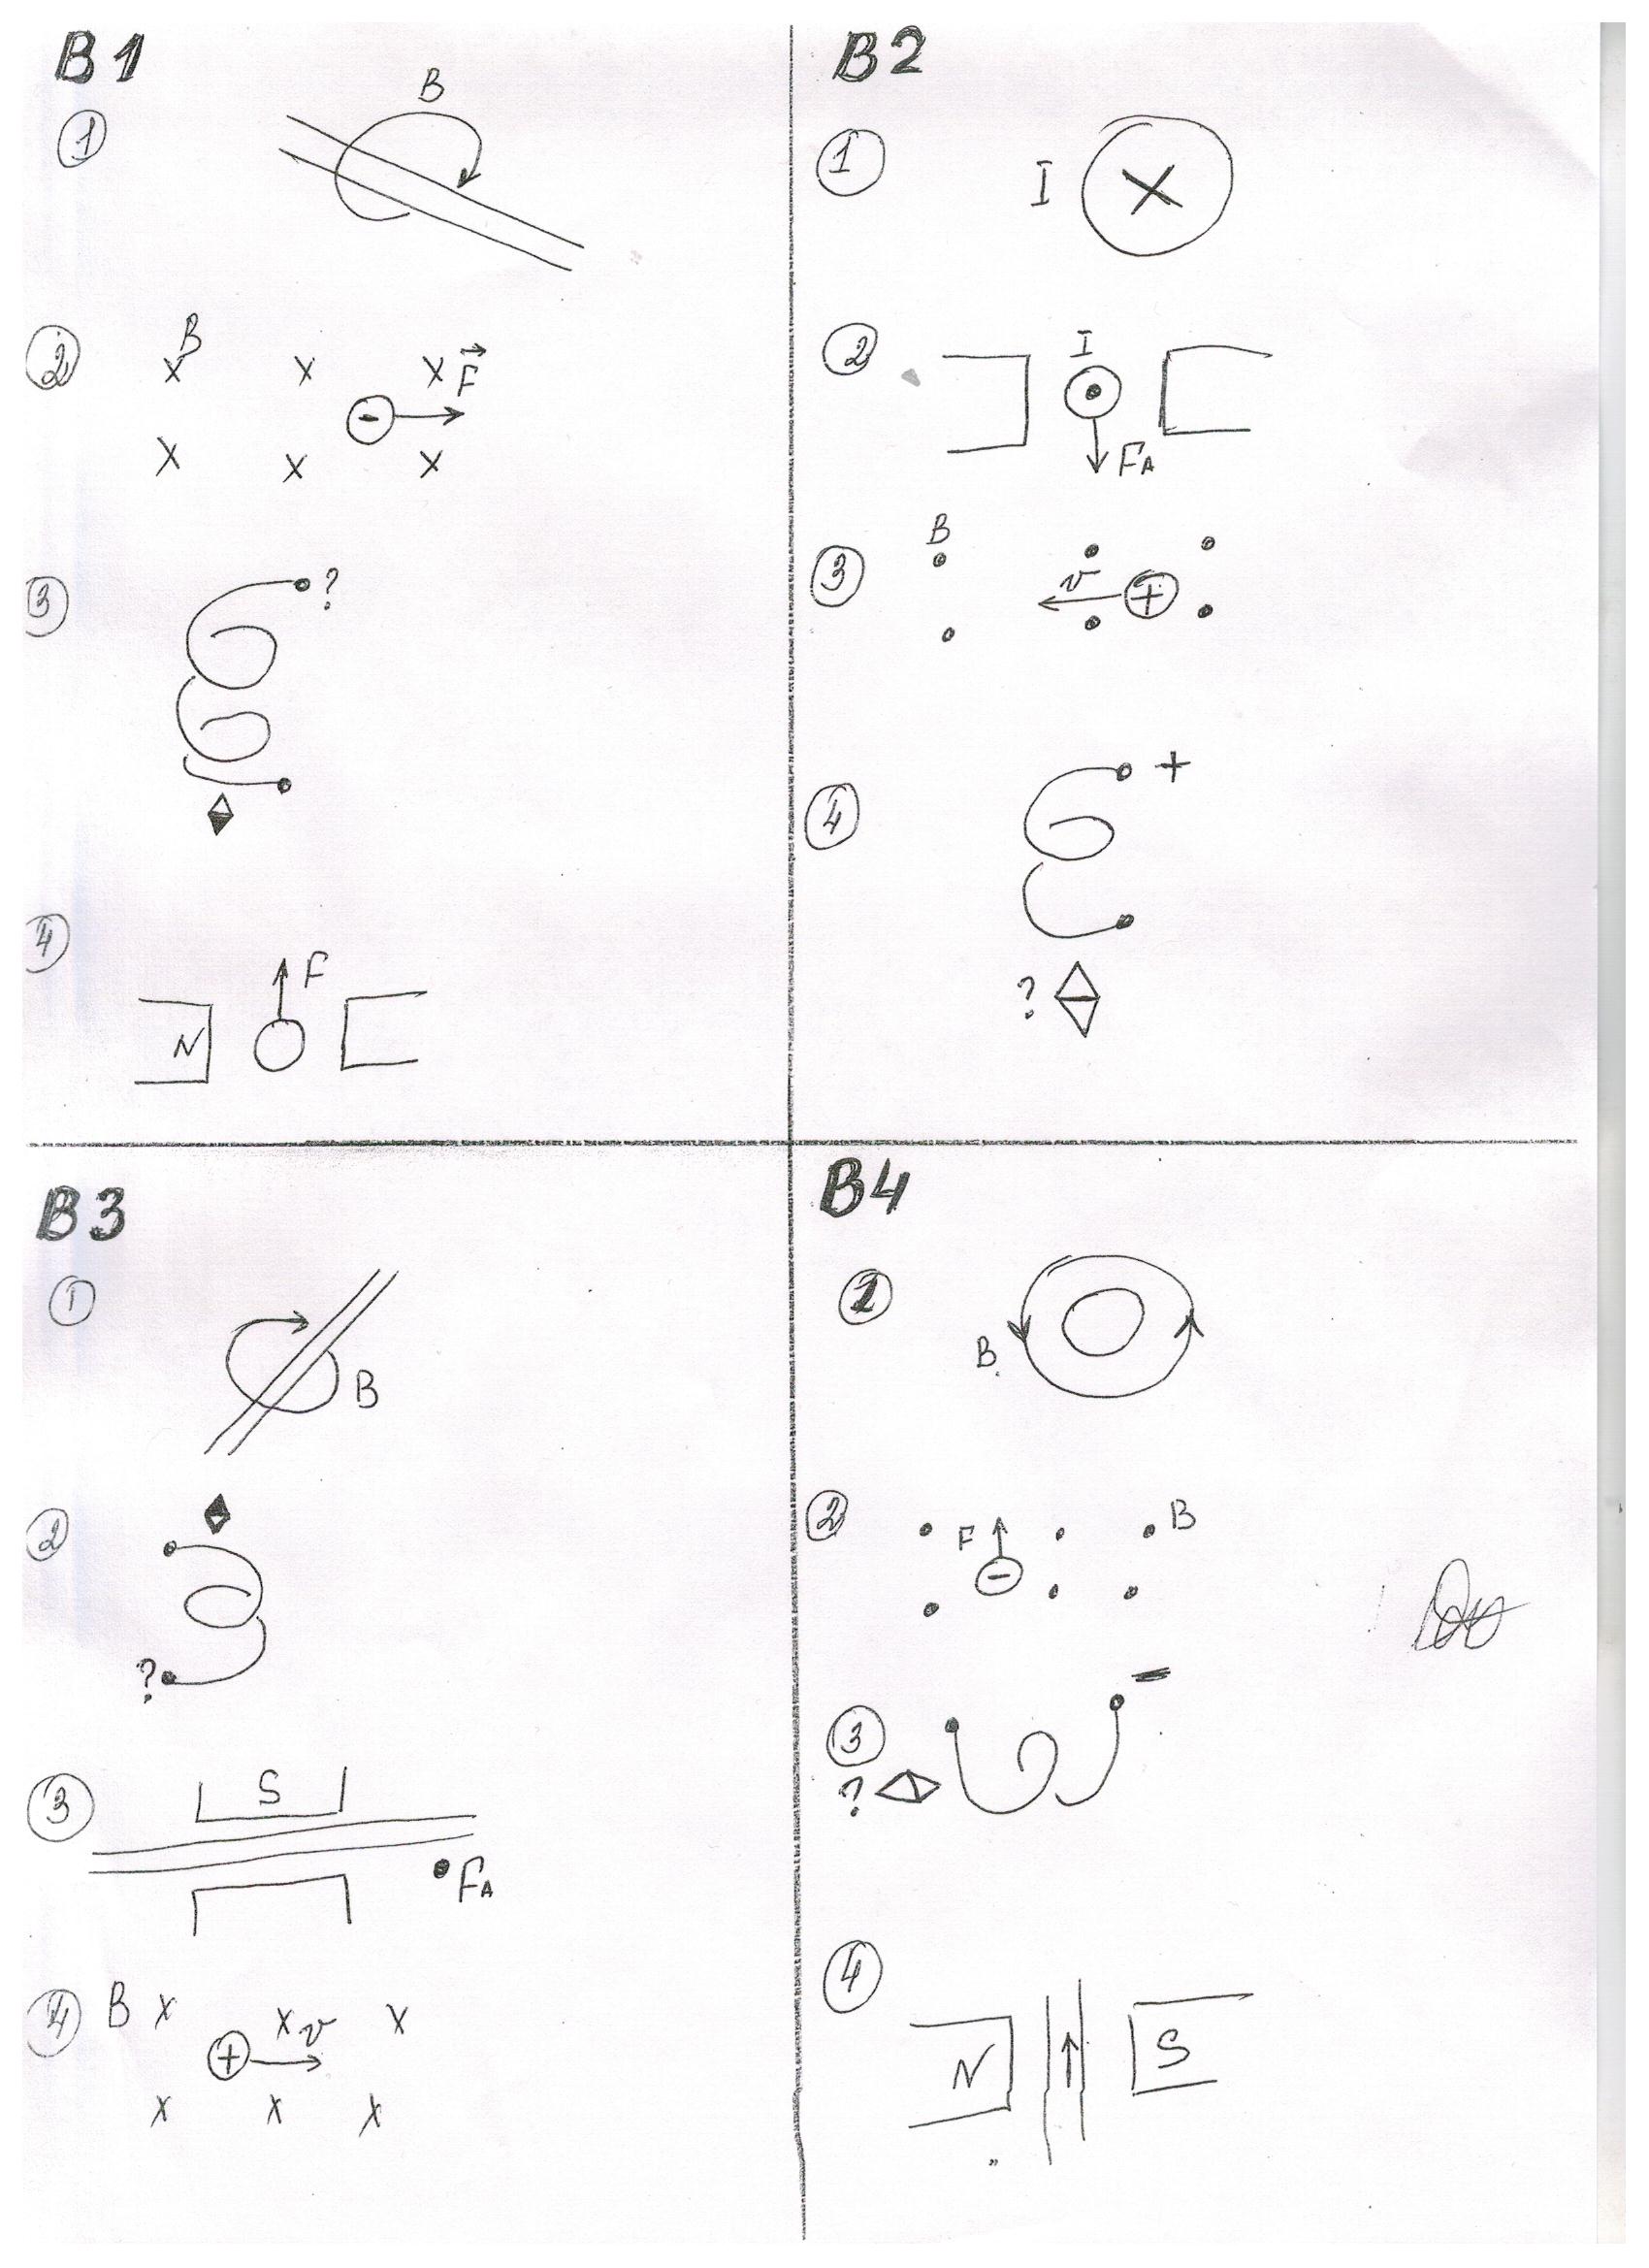 B1
1
B
2
B
x x x F
-
x x x
3
?
4
F
N
B2
1
I X
2
I
FA
3
B
v +
4
+
?
B3
1
B
2
?
3
S
FA
4 B x x v x
+
x x x
B4
1
B
2
F B
-
3
-
?
4
N S